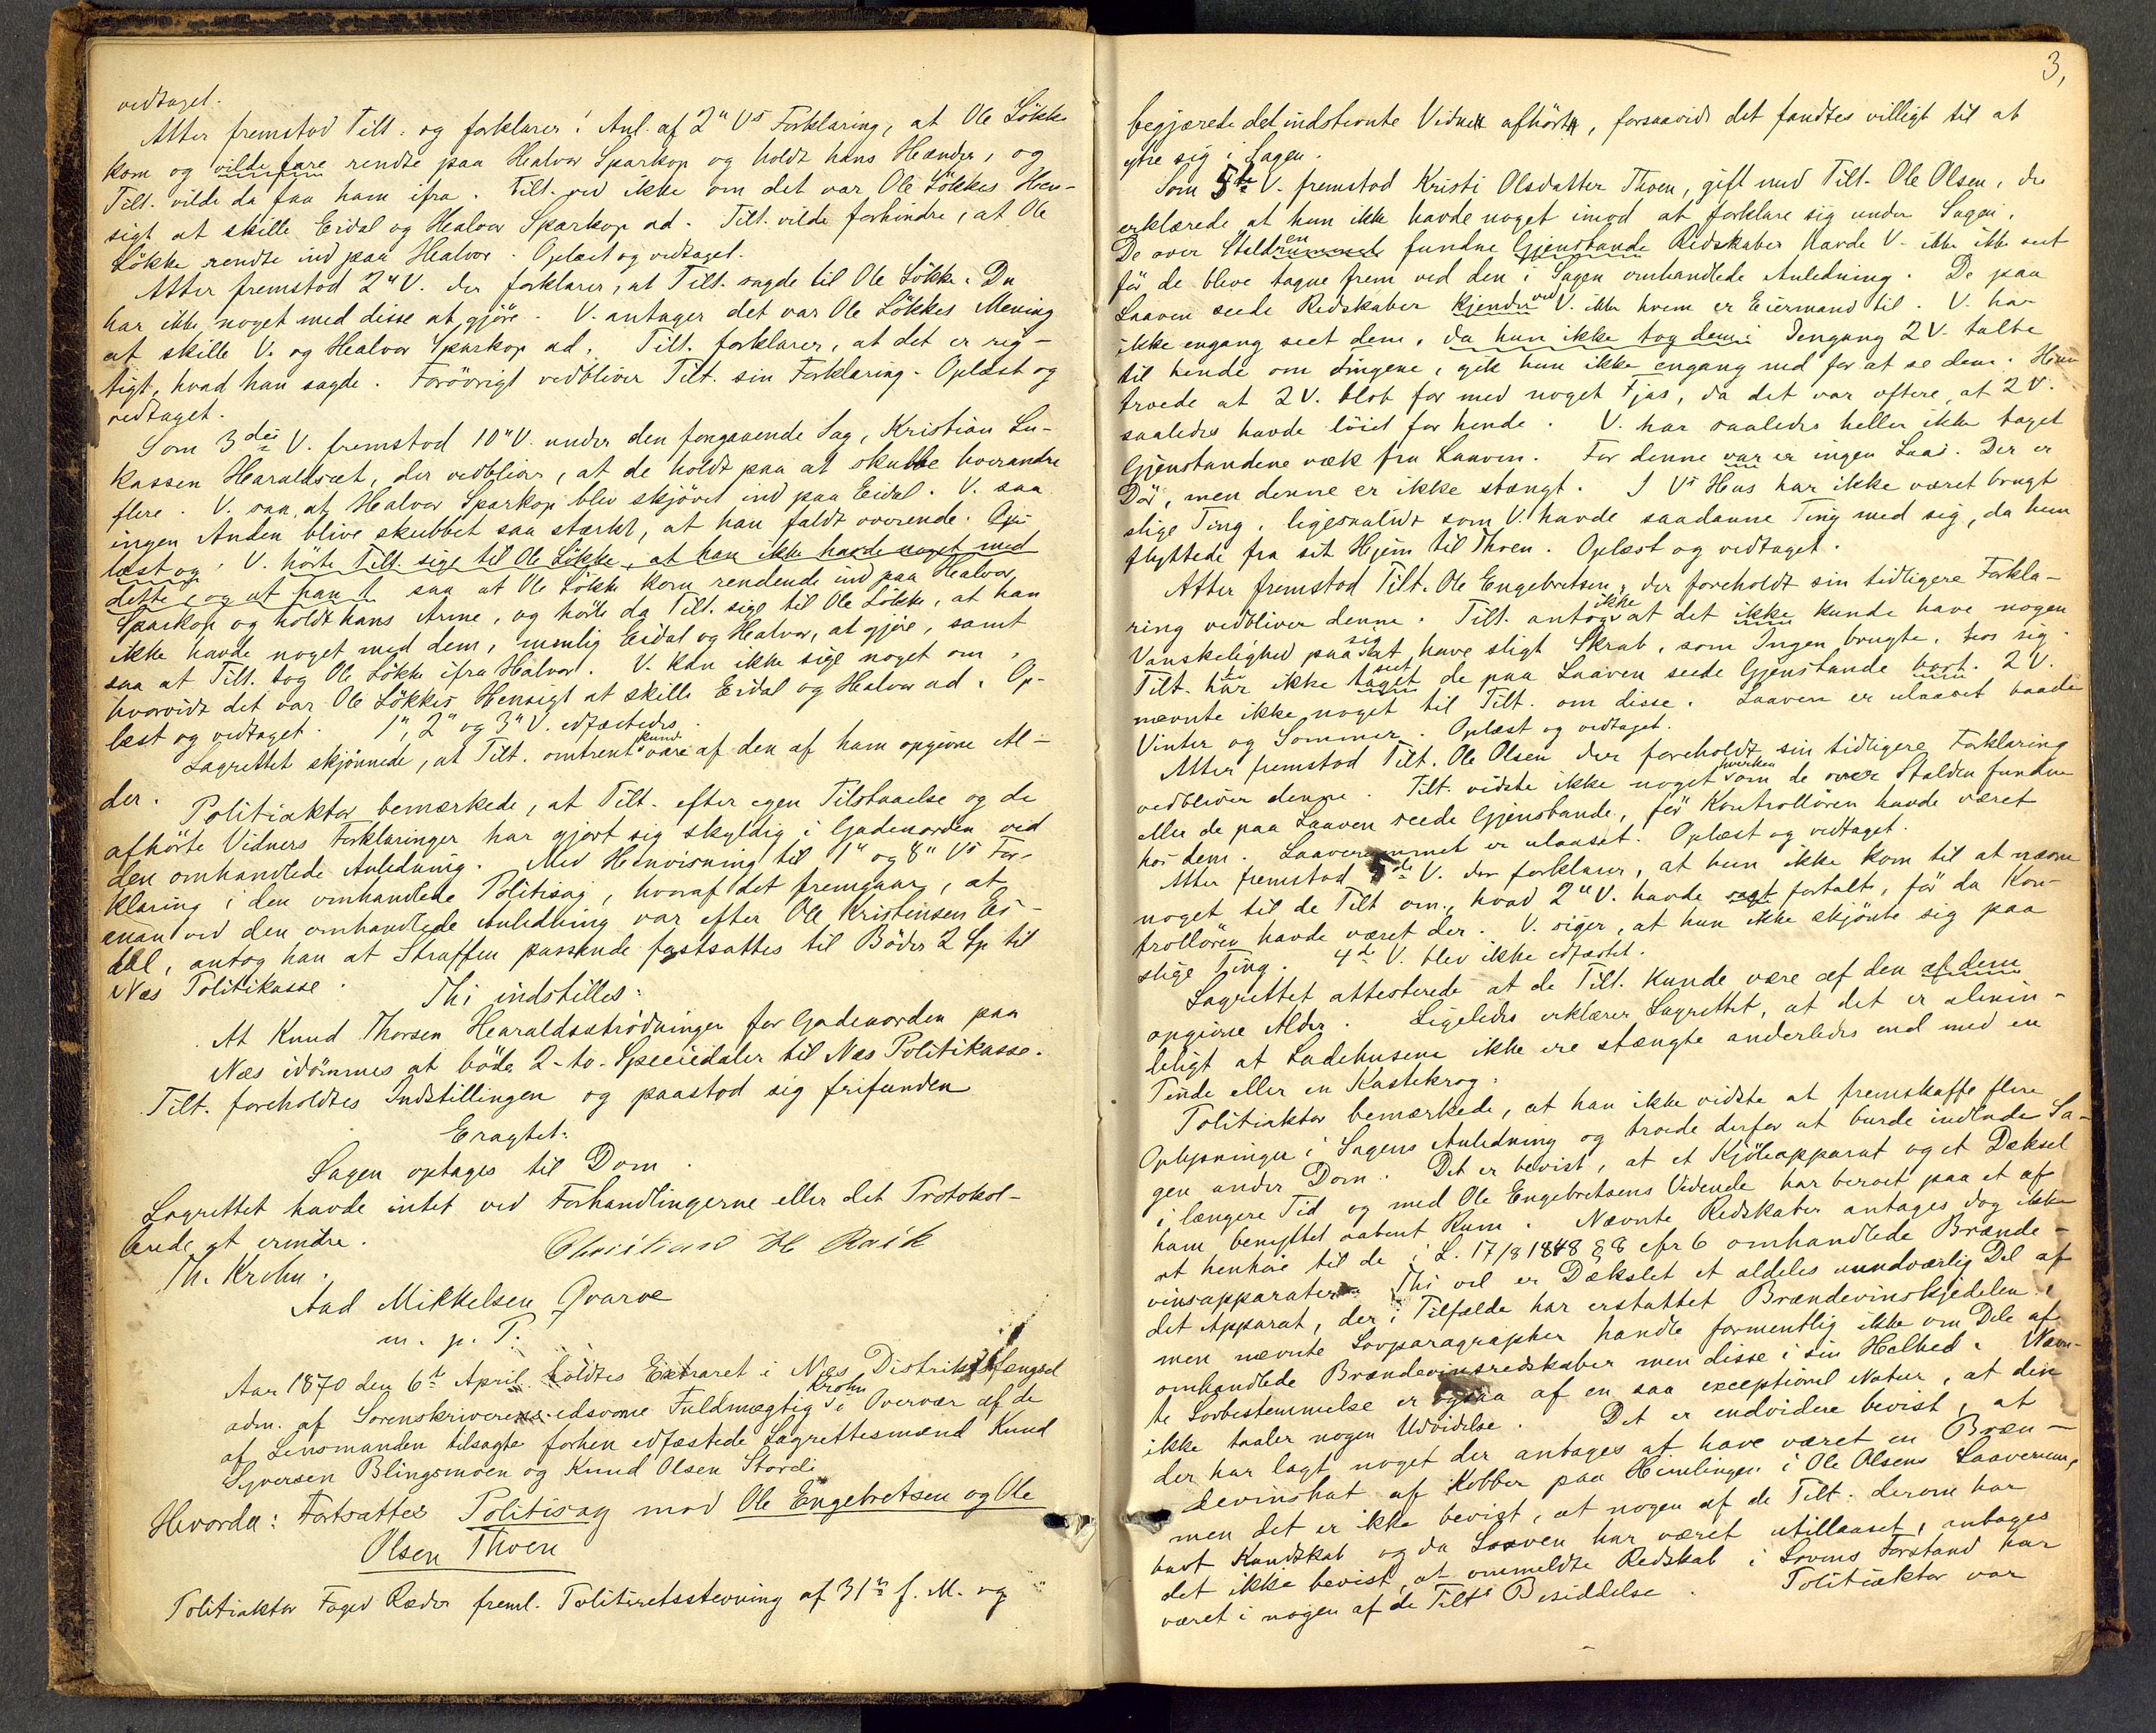 vedtaget.
Atter fremstod Tilt. og forklarer: Anl. af 2" Vs Forklaring, at Ole Lökke
kom og vilde fare rendte paa Healvor Sparkop og holdt hans Hænder, og
Tilt. vilde da faa ham ifra. Tilt. ved ikke om det var Ole Lökkes Hen-
sigt at skille Eidal og Healvor Sparkop ad. Tilt. vilde forhindre, at Ole
Lökke rendte ind paa Healvor. Oplæst og vedtaget.
Atter fremstod 2" V. der forklarer, at Tilt. sagde til Ole Lökke: Du
har ikke noget med disse at gjöre. V. antager det var Ole Lökkes Mening
at skille V. og Healvor Sparkop ad. Tilt. forklarer, at det er rig-
tigt, hvad han sagde. Forövrigt vedbliver Tilt. sin Forklaring. Oplæst og
vedtaget.
Som 3die V. fremstod 10" V. under den foregaaende Sag, Kristian Lu-
kassen Haraldsæt, der vedbliver, at de holdt paa at skubbe hverandre
flere. V. saa, at Healvor Sparkop blev skjövet ind paa Eidal. V. saa
ingen Anden blive skubbet saa stærkt, at han faldt overende. Op-
læst og V. hörte Tilt. sige til Ole Lökke, at han ikke havde noget med
dette, og at han t saa at Ole Lökke kom rendende ind paa Healvor
Sparkop og holdt hans Arme, og hörte da Tilt. sige til Ole Lökke, at han
ikke havde noget med dem, nemlig Eidal og Healvor, at gjöre, samt
saa at Tilt. tog Ole Lökke ifra Halvor. V. kan ikke sige noget om,
hvorvidt det var Ole Lökkes Hensigt at skille Eidal og Healvor ad. Op-
læst og vedtaget. 1", 2" og 3" V. edfæstedes.
Lagrettet skjönnede, at Tilt. omtrent kunde være af den af ham opgivne Al-
der.
Politiaktor bemærkede, at Tilt. efter egen Tilstaaelse og de
afhörte Vidners Forklaringer har gjort sig skyldig i Gadeuorden ved
den omhandlede Anledning. Med Henvisning til 1" og 8" Vs For-
klaring i den omhandlede Politisag, hvoraf det fremgaar, at
enan ved den omhandlede Anledning var efter Ole Kristensen Ei-
dal, antog han at Straffen passende fastsattes til Böder 2 Sp. til
Næs Politikasse.
Thi indstilles:
At Knud Thorsen Hearaldsætrödningen for Gadeuorden paa
Næs idömmes at böde 2- to- Speciedaler til Næs Politikasse.
Tilt. foreholdtes Indstillingen og paastod sig frifunden
Eragtet:
Sagen optages til Dom.
Lagrettet havde intet ved Forhandlingerne eller det Protokol-
lerede at erindre.
Th. Krohn. Christian H Roik
Aad Mikkelsen Qvarve
m. p. P.
Aar 1870 den 6te April holdtes Extraret i Næs Distriktsfængsel
adm. af Sorenskriverens edsvorne Fuldmægtig Krohn i Overvær af de
af Lensmanden tilsagte forhen edfæstede Lagrettesmænd Knud
Syversen Blingsmoen og Knud Olsen Stordi
Hvorda: Fortsattes Politisag mod Ole Engebretsen og Ole
Olsen Thoen
Politiaktor Foged Ræder freml. Politiretsstevning af 31te f. M. og
3,
begjærede det indstevnte Vidne afhört, forsaavidt det fandtes villigt til at
ytre sig i Sagen.
Som 5te V. fremstod Kristi Olsdatter Thoen, gift med Tilt. Ole Olsen, der
erklærede, at hun ikke havde noget imod at forklare sig under Sagen.
De over Stalden fundne Gjenstande Redskaber havde V. ikke seet
för de bleve tagne frem ved den i Sagen omhandlede Anledning. De paa
Laaven seede Redskaber kjender ved V. ikke hvem er Eiermand til. V. har
ikke engang seet dem, da hun ikke tog dem i Dengang 2 V. talte
til hende om Tingene, gik hun ikke engang ned for at se dem. Hun
troede at 2 V. blot for med noget Fjas, da det var oftere, at 2 V.
saaledes havde löiet for hende. V. har saaledes heller ikke taget
Gjenstandene væk fra Laaven. For denne var er ingen Laas. Der er
Dör, men denne er ikke stængt. I Vs Hus har ikke været brugt
slige Ting, ligesaalidt som V. havde saadanne Ting med sig, da hun
flyttede fra sit Hjem til Thoen. Oplæst og vedtaget.
Atter fremstod Tilt. Ole Engebretsen, der foreholdt sin tidligere Forkla-
ring vedbliver denne. Tilt. antog ikke at det ikke kunde have nogen
Vanskelighed paa sig at have sligt Skrab, som Ingen brugte, hos sig.
Tilt. har ikke taget seet de paa Laaven seede Gjenstande bort. 2 V.
nævnte ikke noget til Tilt. om disse. Laaven er ulaaset baade
Vinter og Sommer. Oplæst og vedtaget.
Atter fremstod Tilt. Ole Olsen der foreholdt sin tidligere Forklaring
vedbliver denne. Tilt. vidste ikke noget hverken om de over Stalden fundne
eller de paa Laaven seede Gjenstande, för Kontrollören havde været
hos dem. Laaverummet er ulaaset. Oplæst og vedtaget.
Atter fremstod 5te V. der forklarer, at hun ikke kom til at nævne
noget til de Tilt om, hvad 2" V. havde sagt fortalt, för da Kon-
trollören havde været der. V. siger, at hun ikke skjönte sig paa
slige Ting. 4de V. blev ikke edfæstet.
Lagrettet attesterede at de Tilt. kunde være af den af dem
opgivne Alder. Ligeledes erklærer Lagrettet, at det er almin-
deligt at Ladehusene ikke ere stængte anderledes end med en
Tinde eller en Kastekrog.
Politiaktor bemærkede, at han ikke vidste at fremskaffe flere
Oplysninger i Sagens Anledning og troede derfor at burde indlade Sa-
gen under Dom. Det er bevist, at et Kjöleapparat og et Dæksel
i længere Tid og med Ole Engebretsens Vidende har beroet paa et af
ham benyttet aabent Rum. Nævnte Redskaber antages dog ikke
at henhöre til de i L. 17/8 1848 § 8 cfr 6 omhandlede Brænde-
vinsapparater. Thi vel er Dækslet et aldeles uundværlig Del af
det Apparat, der i Tilfælde har erstattet Brændevinskjedelen,
men nævnte Lovparagrapher handle formentlig ikke om Dele af
omhandlede Brændevinsredskaber men disse i sin Helhed. Nævn-
te Lovbestemmelse er ogsaa af en saa exceptionel Natur, at den
ikke taaler nogen Udvidelse. Det er endvidere bevist, at
der har lagt noget der antages at have været en Bræn-
devinshat af Kobber paa Himlingen i Ole Olsens Laaverum,
men det er ikke bevist, at nogen af de Tilt. derom har
havt Kundskab og da Laaven har været utillaaset, antages
det ikke bevist, at ommeldte Redskab i Lovens Forstand har
været i nogen af de Tilts Besiddelse. Politiaktor var